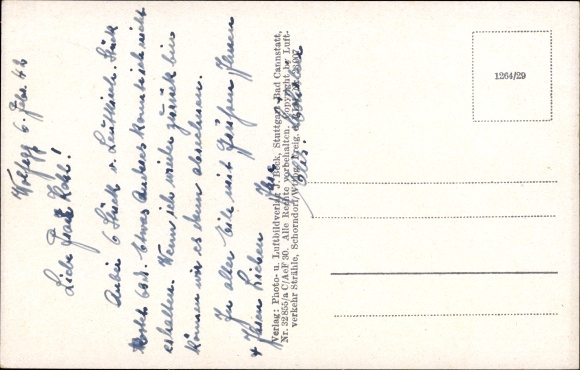 6. Febr. 42
Liebe Frau Kohl!
Anbei 6 Stück v. Stück
kostet 60 d. Etwas anderes konnte ich nicht
erhalten. Wenn ich wieder zurück bin
können wir es dann abrechnen.
In aller Eile mit Grüßen Ihnen
+ Ihren Lieben Ihre
Verlag: Photo- u. Luftbildverlag J. Beck, Stuttgart-Bad Cannstatt,
Nr. 32855/a C/AeF 30. Alle Rechte vorbehalten. Copyright by Luft-
verkehr Strähle, Schorndorf/Wttbg. Freig. d.
1264/29